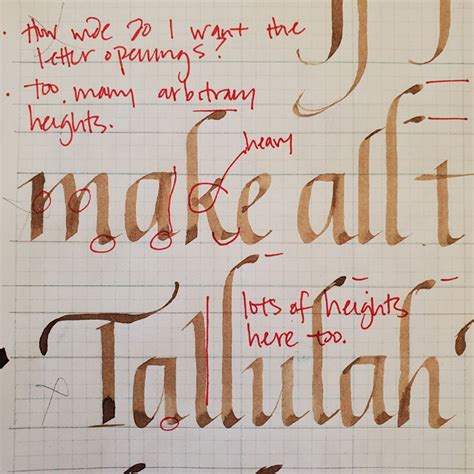 • How wide do I want the
letter openings?
• Too many arbitrary
heights.
heavy
make all t
lots of heights
here too.
Tallulah